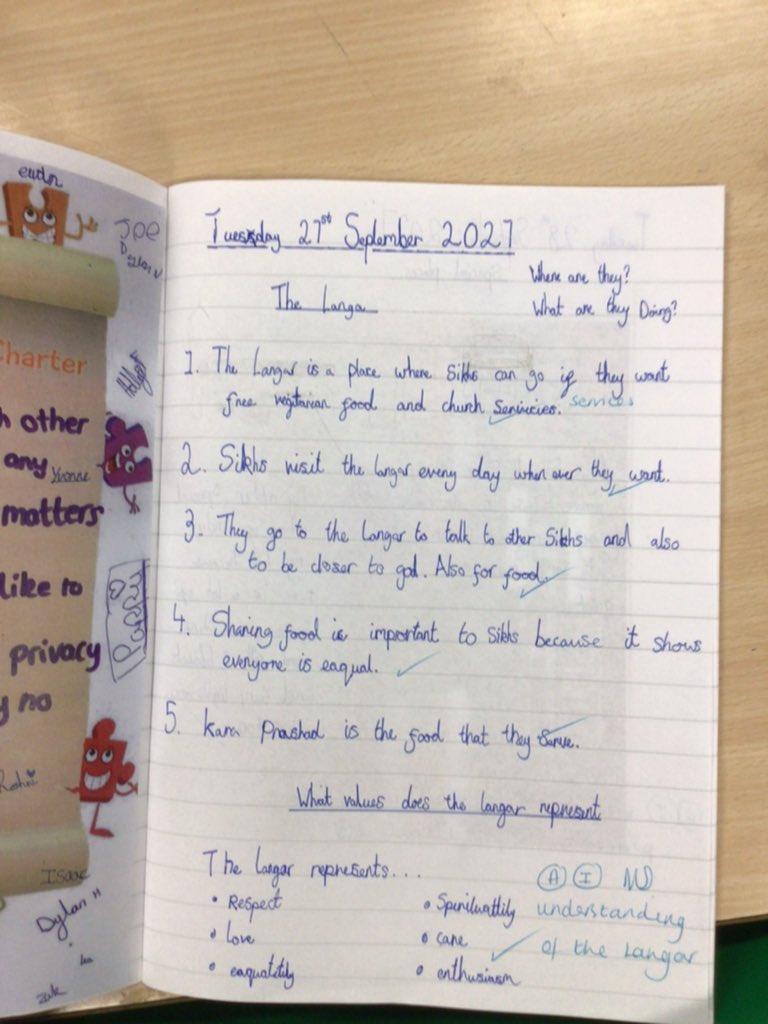 eudn
Joe
Dylan
Charter
h other
any
Yvonne
matters
like to
Poppy
privacy
y no
Rohit
Isaac
Dylan
Isa
zak
Tuesday 27st September 2027
Where are they?
The Langa
What are they Doing?
1. The Langar is a place where Sikhs can go if they want
free vegitarian food and church Serivicies. services
2. Sikhs visit the langar every day when ever they want.
3. They go to the Langar to talk to other Sikhs and also
to be closer to god. Also for food.
4. Sharing food is important to Sikhs because it shows
everyone is eaqual.
5. kara Prashad is the food that they Serve.
What values does the langar represent
The langar represents...
A I NS
• Respect
• Spiriluattily
understanding
• Love
• care
of the Langar
• eaquatitily
• enthusiasm